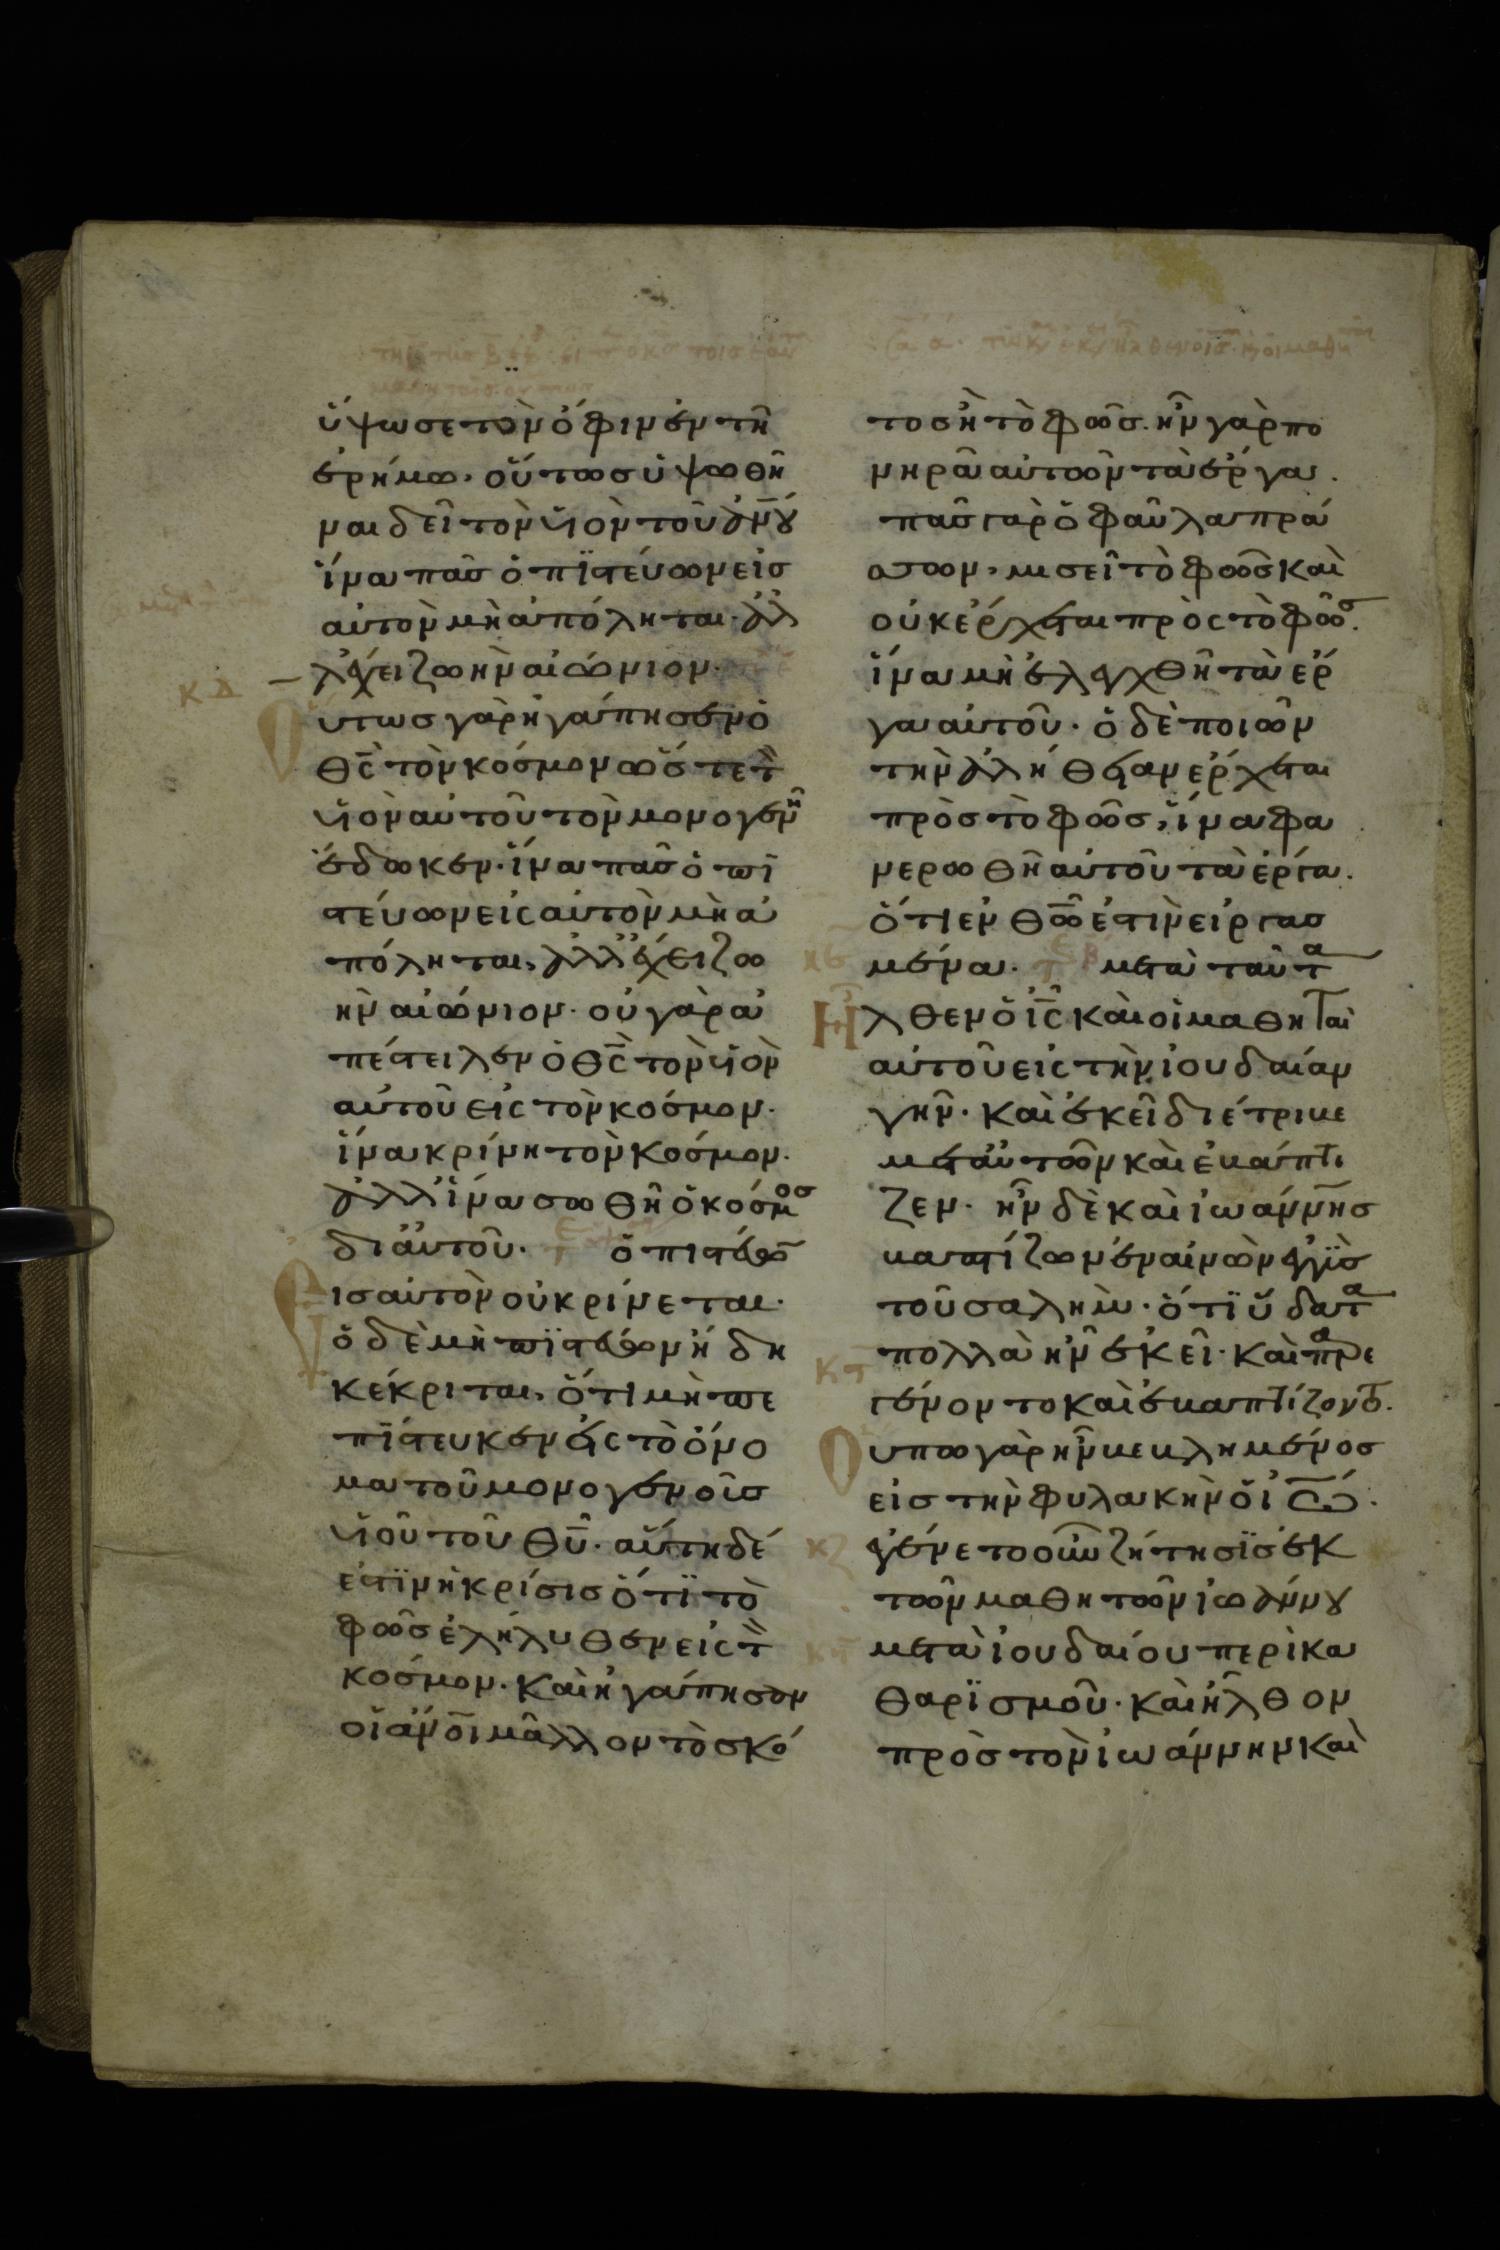 ὕψωσε τὸν ὄφιν ἐν τῆ
ἐρήμω· οὕτως ὑψωθῆ
ναι δεῖ τὸν υἱὸν τοῦ ἀν̅ου
ἵνα πᾶς ὁ πϊστεύων εἰς
αὐτὸν μὴ ἀπόληται· ἀλ
λ' ἔχει ζωὴν αἰώνιον·
κδ
Οὕτως γὰρ ἠγάπησεν ὁ
θ̅ς̅ τὸν κόσμον ὥστε τ̀
υἱὸν αὐτοῦ τὸν μονογενῆ
ἔδωκεν· ἵνα πᾶς ὁ πϊ
στεύων εἰς αὐτὸν μὴ ἀ
πόληται, ἀλλ' ἔχει ζω
ὴν αἰώνιον· οὐ γὰρ ἀ
πέστειλεν ὁ θ̅ς̅ τὸν υἱὸν
αὐτοῦ εἰς τὸν κόσμον·
ἵνα κρίνη τὸν κόσμον·
ἀλλ' ἵνα σωθῆ ὁ κόσμος
δι' αὐτοῦ· ὁ πιστεύω̅
εἰς αὐτὸν οὐ κρίνεται·
ὁ δὲ μὴ πϊστεύων ἤδη
κέκριται, ὅτι μὴ πε
πϊστευκεν εἰς τὸ ὄνο
μα τοῦ μονογενοῦς
υἱοῦ τοῦ θ̅υ̅· αὕτη δέ
ἐστϊν ἡ κρίσις ὅτϊ τὸ
φῶς ἐλήλυθεν εἰς τ̀
κόσμον· καὶ ἠγάπησαν
οἱ ἄν̅οι μᾶλλον τὸ σκό
τος ἢ τὸ φῶς· ἦν γὰρ πο
νηρὰ αὐτῶν τὰ ἔργα·
πᾶς γὰρ ὁ φαῦλα πρά
σσων, μισεῖ τὸ φῶς καὶ
οὐκ ἔρχεται πρὸς τὸ φῶς·
ἵνα μὴ ἐλεγχθῆ τὰ ἔρ
γα αὐτοῦ· ὁ δὲ ποιῶν
τὴν ἀλήθειαν ἔρχεται
πρὸς τὸ φῶς, ἵνα φα
νερωθῆ αὐτοῦ τὰ ἔργα·
ὅτι ἐν θ̅ω̅ ἐστὶν εἰργασ
μένα· μετὰ ταῦτα
Ἦλθεν ὁ ι̅ς̅ καὶ οἱ μαθηταὶ
αὐτοῦ εἰς τὴν ἰουδαίαν
γῆν· καὶ ἐκεῖ διέτριβε
μετ' αὐτῶν καὶ ἐβάπτι
ζεν· ἦν δὲ καὶ ἰωάννης
βαπτίζων ἐν αἰνὼν ἐγγὺς
τοῦ σαλήμ· ὅτϊ ὕδατα
πολλὰ ἦν ἐκεῖ· καὶ παρε
γένοντο καὶ ἐβαπτίζοντο·
Οὔπω γὰρ ἦν βεβλημένος
εἰς τὴν φυλακὴν ὁ ἰω̅·
κζ
ἐγένετο οὖν ζήτησϊς ἐκ
τῶν μαθητῶν ἰωάννου
μετὰ ἰουδαίου περὶ κα
θαρϊσμοῦ· καὶ ἦλθον
πρὸς τὸν ἰωάννην καὶ